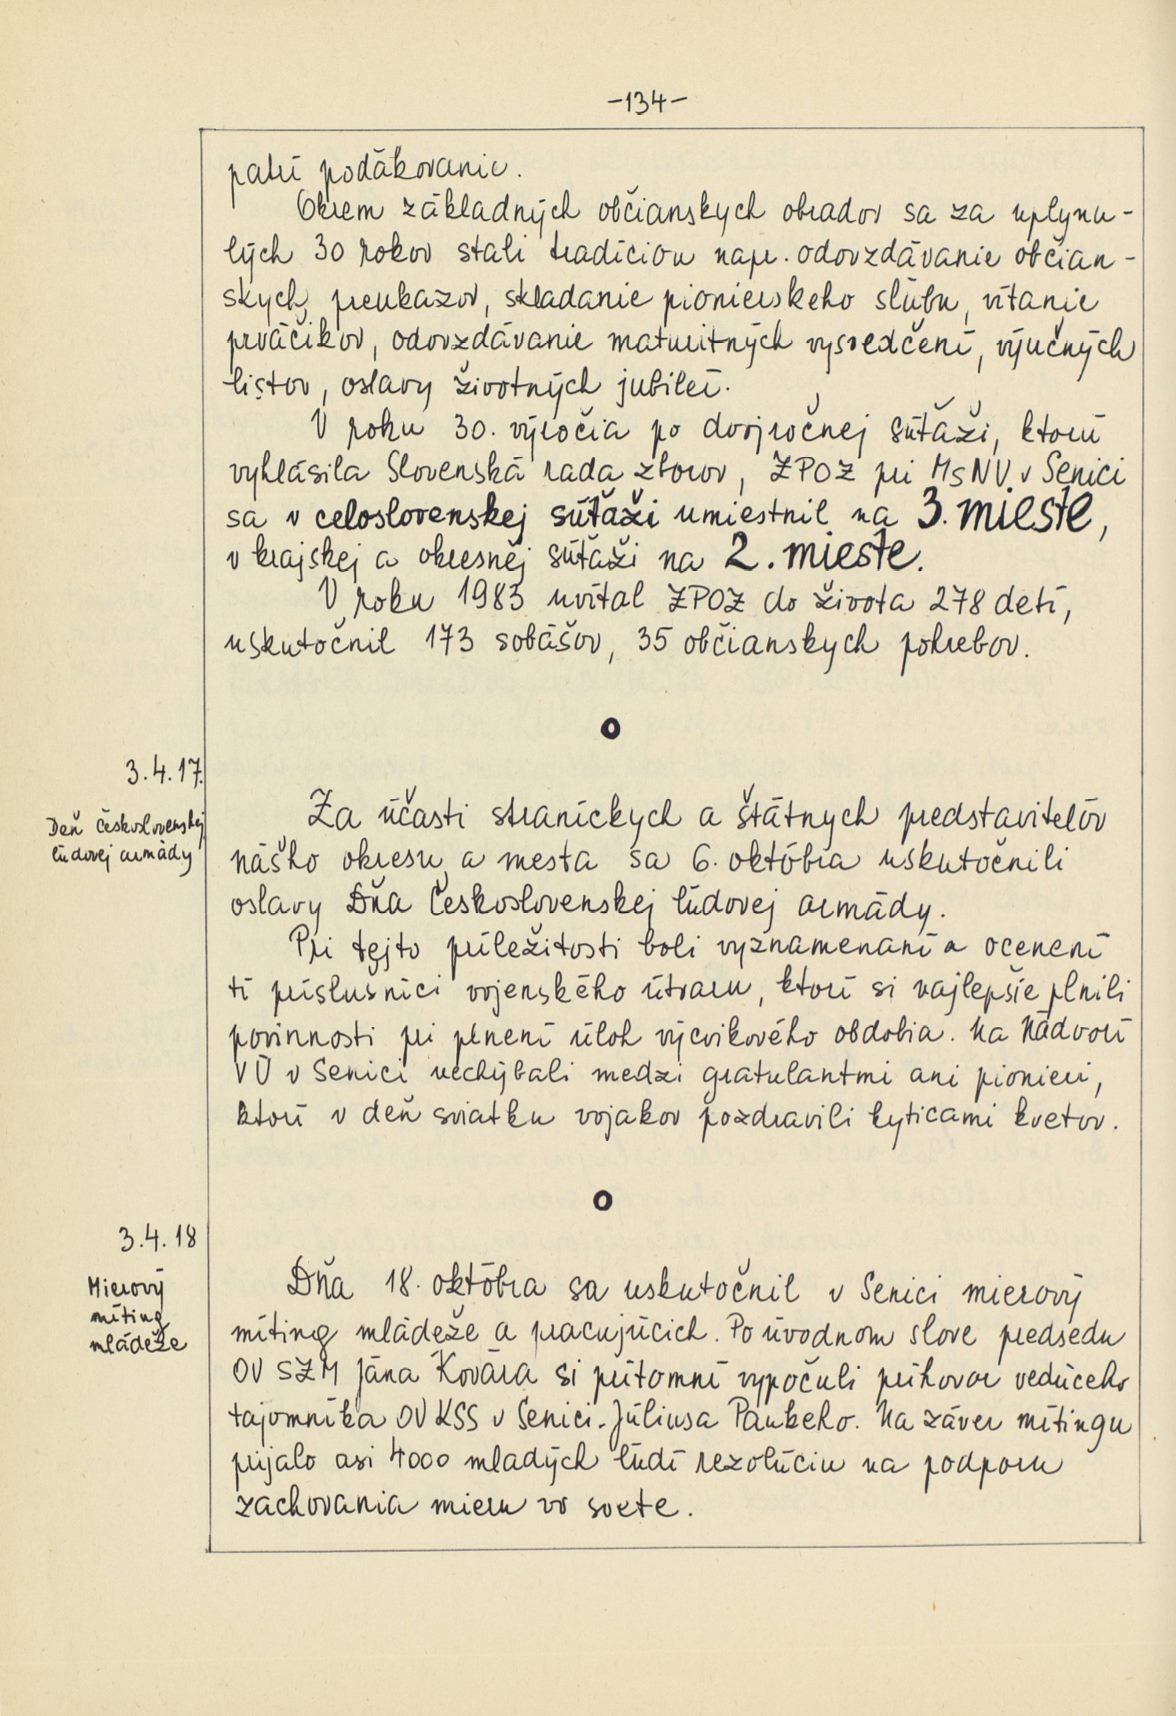 -134-
patrí poďakovanie.
Okrem základných občianskych obradov sa za uplynu-
lých 30 rokov stali tradíciou napr. odovzdávanie občian-
skych preukazov, skladanie pionierskeho sľubu, vítanie
prváčikov, odovzdávanie maturitných vysvedčení, výučných
listov, oslavy životných jubileí.
V roku 30. výročia po dvojročnej súťaži, ktorú
vyhlásila Slovenská rada zborov, ZPOZ pri MsNV v Senici
sa v celoslovenskej súťaži umiestnil na 3. mieste,
v krajskej a okresnej súťaži na 2. mieste.
V roku 1983 uvítal ZPOZ do života 278 detí,
uskutočnil 173 sobášov, 35 občianskych pohrebov.
o
3.4.17.
Deň Československej
ľudovej armády
Za účasti straníckych a štátnych predstaviteľov
nášho okresu a mesta sa 6. októbra uskutočnili
oslavy Dňa Československej ľudovej armády.
Pri tejto príležitosti boli vyznamenaní a ocenení
tí príslušníci vojenského útvaru, ktorí si najlepšie plnili
povinnosti pri plnení úloh výcvikového obdobia. Na nádvorí
VÚ v Senici nechýbali medzi gratulantmi ani pionieri,
ktorí v deň sviatku vojakov pozdravili kyticami kvetov.
o
3.4.18
Mierový
míting
mládeže
Dňa 18. októbra sa uskutočnil v Senici mierový
míting mládeže a pracujúcich. Po úvodnom slove predsedu
OV SZM Jána Kovára si prítomní vypočuli príhovor vedúceho
tajomníka OV KSS v Senici Júliusa Paukeho. Na záver mítingu
prijalo asi 4000 mladých ľudí rezolúciu na podporu
zachovania mieru vo svete.